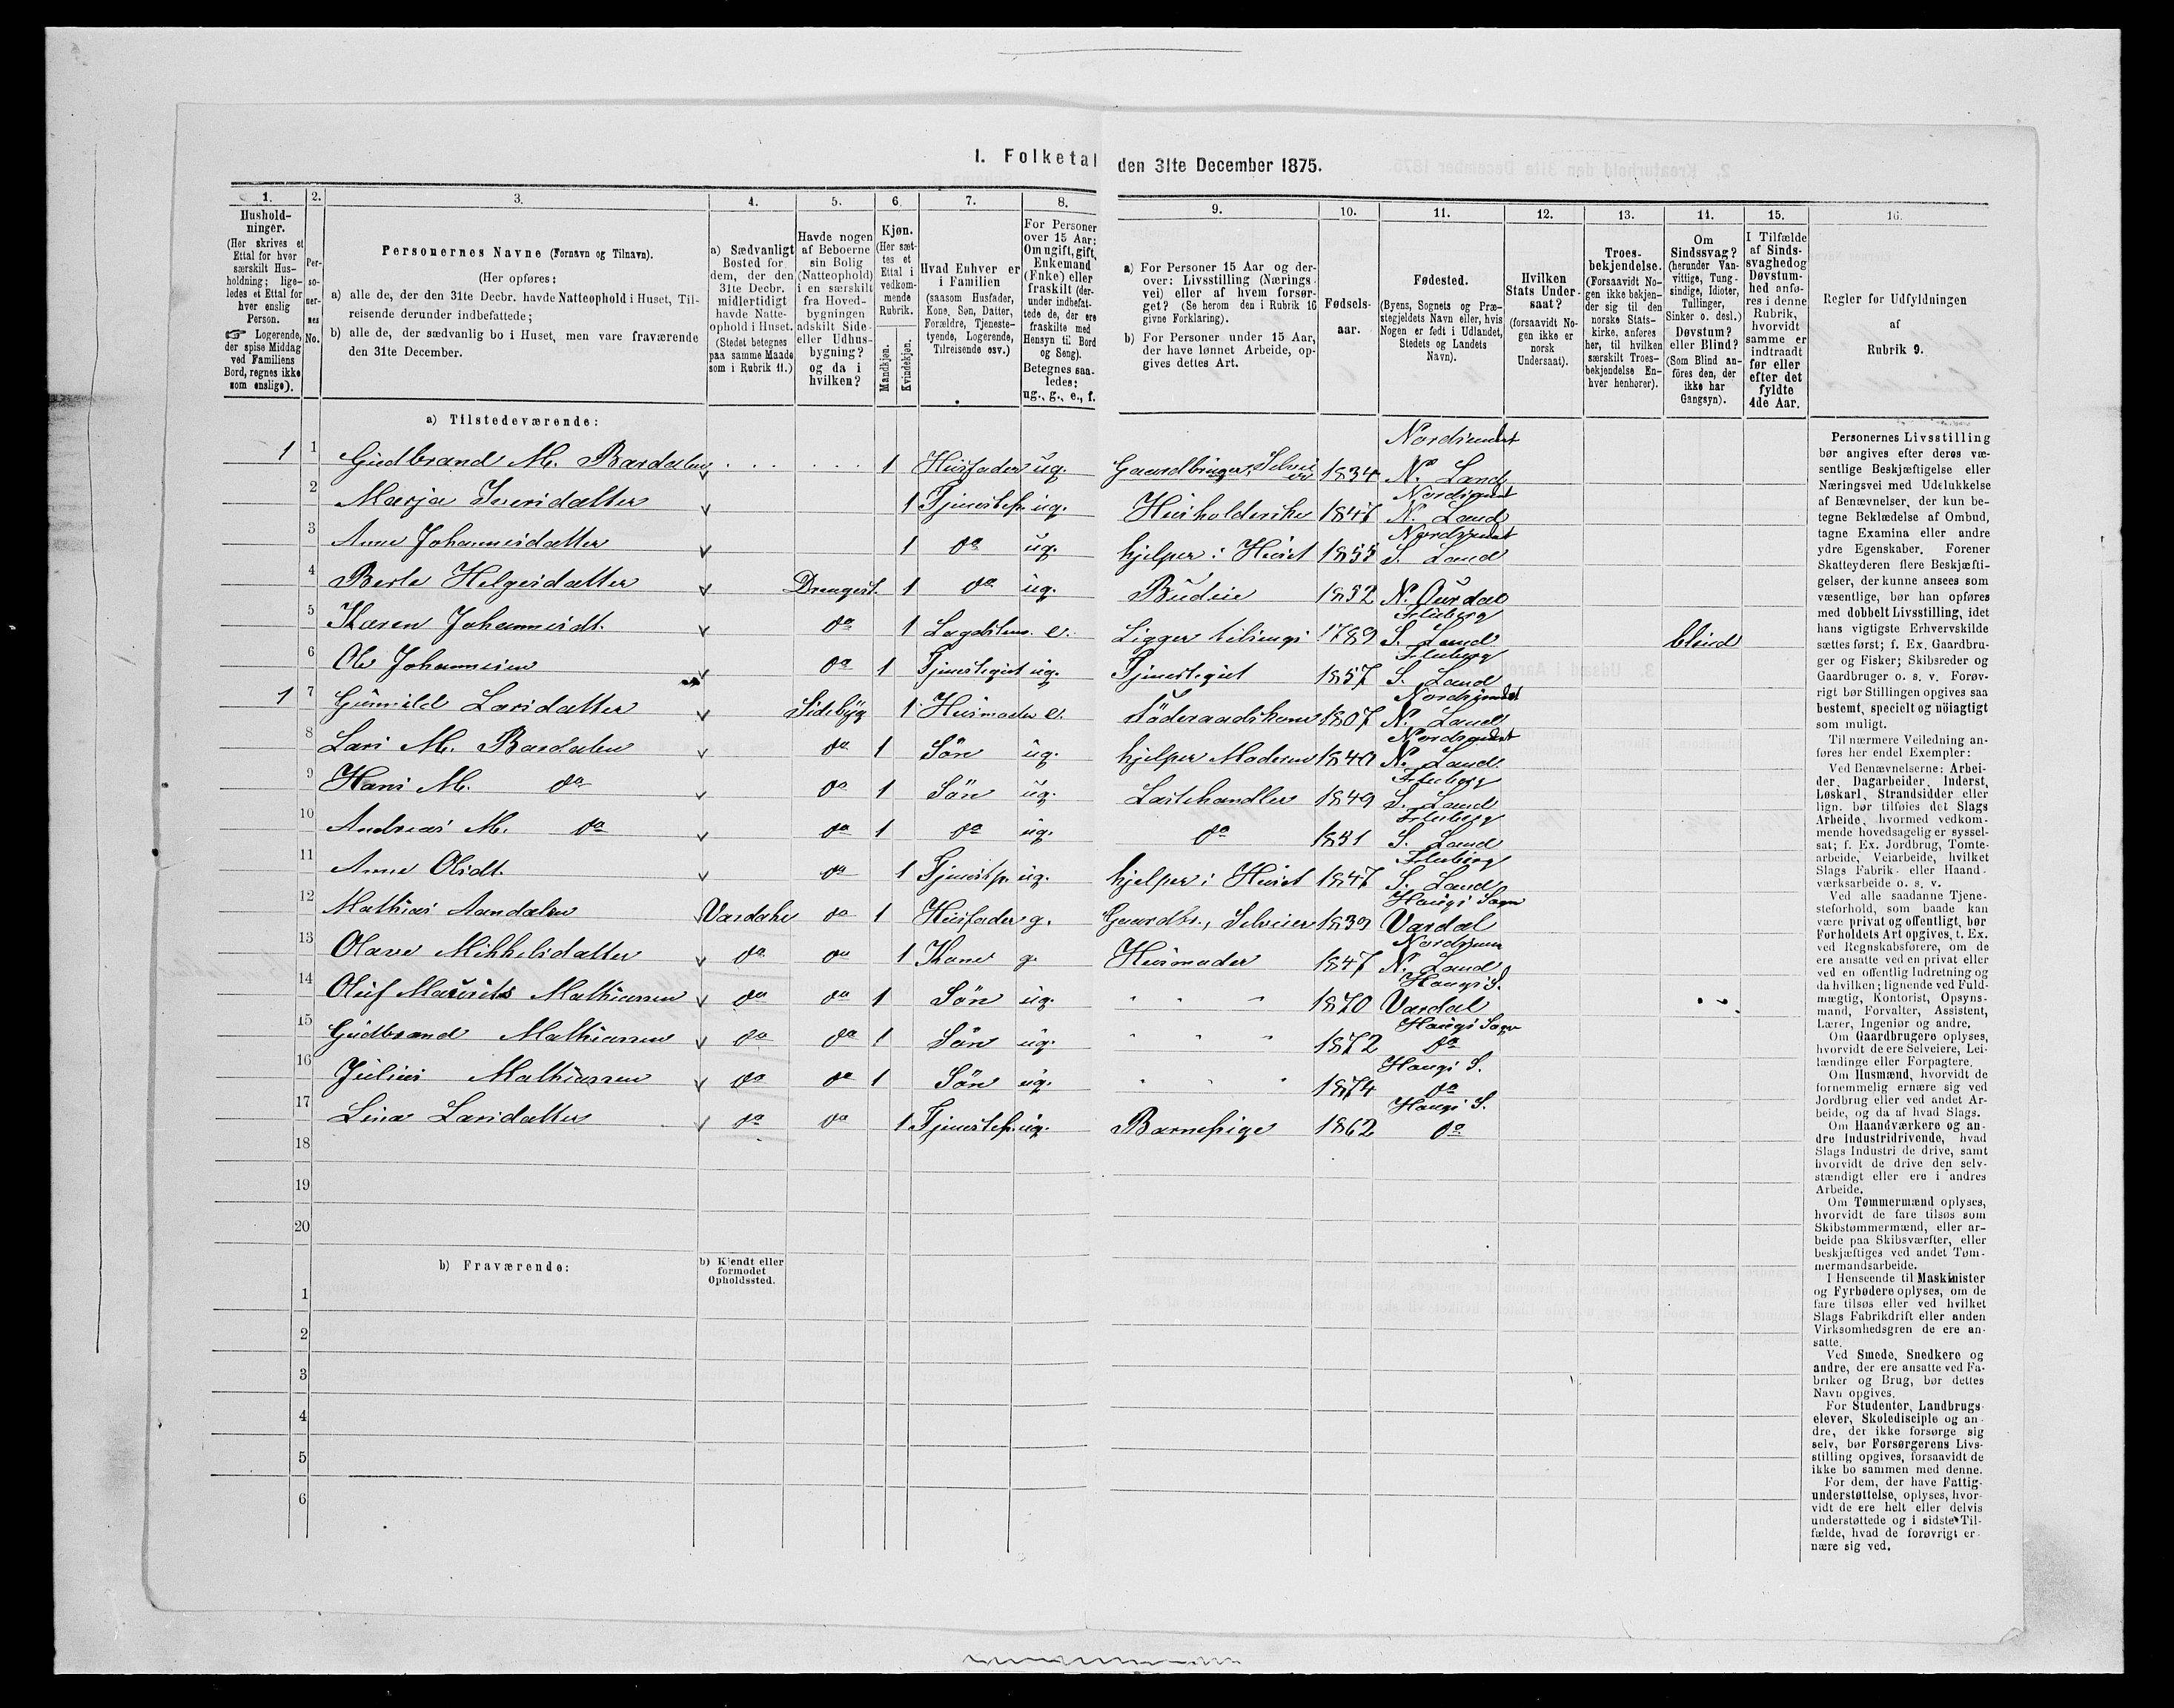 I. Folketal den 31te December 1875.
1. 2. 3. 4. 5. 6. 7. 8. 9. 10. 11. 12. 13. 14. 15. 16.
Hushold-
ninger.
(Her skrives et
Ettal for hver
særskilt Hus-
holdning; lige-
ledes et Ettal for
hver enslig
Person.
☞ Logerende,
der spise Middag
ved Familiens
Bord, regnes ikke
som enslige).
Per-
so-
ner-
nes
No.
Personernes Navne (Fornavn og Tilnavn).
(Her opføres:
a) alle de, der den 31te Decbr. havde Natteophold i Huset, Til-
reisende derunder indbefattede;
b) alle de, der sædvanlig bo i Huset, men vare fraværende
den 31te December.
a) Sædvanligt
Bosted for
dem, der den
31te Decbr.
midlertidigt
havde Natte-
ophold i Huset.
(Stedet betegnes
paa samme Maade
som i Rubrik 11.)
Havde nogen
af Beboerne
sin Bolig
(Natteophold)
i en særskilt
fra Hoved-
bygningen
adskilt Side-
eller Udhus-
bygning?
og da i
hvilken?
Kjøn.
(Her sæt-
tes et
Ettal i
vedkom-
mende
Rubrik.
Mandkjøn.
Kvindekjøn.
Hvad Enhver er
i Familien
(saasom Husfader,
Kone, Søn, Datter,
Forældre, Tjeneste-
tyende, Logerende,
Tilreisende osv.)
For Personer
over 15 Aar:
Om ugift, gift,
Enkemand
(Enke) eller
fraskilt (der-
under indbefat-
tede de, der ere
fraskilte med
Hensyn til Bord
og Seng).
Betegnes saa-
ledes:
ug., g., e., f.
a) For Personer 15 Aar og der-
over: Livsstilling (Nærings-
vei) eller af hvem forsør-
get? (Se herom den i Rubrik 16
givne Forklaring).
b) For Personer under 15 Aar,
der have lønnet Arbeide, op-
gives dettes Art.
Fødsels-
aar.
Fødested.
(Byens, Sognets og Præ-
stegjeldets Navn eller, hvis
Nogen er født i Udlandet,
Stedets og Landets
Navn).
Hvilken
Stats Under-
saat?
(forsaavidt No-
gen ikke er
norsk
Undersaat).
Troes-
bekjendelse.
(Forsaavidt No-
gen ikke bekjen-
der sig til den
norske Stats-
kirke, anføres
her, til hvilken
særskilt Troes-
bekjendelse En-
hver henhører).
Om
Sindssvag?
(herunder Van-
vittige, Tung-
sindige, Idioter,
Tullinger,
Sinker o. desl.)
Døvstum?
eller Blind?
(Som Blind an-
føres den, der
ikke har
Gangsyn).
I Tilfælde
af Sinds-
svaghed og
Døvstum-
hed anfø-
res i denne
Rubrik,
hvorvidt
samme er
indtraadt
før eller
efter det
fyldte
4de Aar.
Regler for Udfyldningen
af
Rubrik 9.
a) Tilstedeværende:
1 1 Gudbrand M. Bardalen 1 Husfader ug. Gaardbruger, Selveier 1834 N. Land
2 Marja Iversdatter 1 Tjenestep. ug. Husholderske 1847 N. Land
3 Anne Johannesdatter 1 do ug. hjelper i Huset 1855 S. Land
4 Berte Helgesdatter Drengest. 1 do ug. Budeie 1832 N. Aurdal
5 Karen Johannesdt. do 1 Lægdslem. e. Ligger tilsengs 1789 Fluberg S. Land blind
6 Ole Johannesen do 1 Tjenestegut ug. Tjenestegut 1857 Fluberg S. Land
1 7 Gunnild Larsdatter Sidebyg 1 Husmoder e. Föderaadskone 1807 N. Land
8 Lars M. Bardalen do 1 Sön ug. hjelper Moderen 1840 N. Land
9 Hans M. do do 1 Sön ug. Lastehandler 1849 Fluberg S. Land
10 Andreas M. do do 1 do ug. do 1851 Fluberg S. Land
11 Anne Olsdt. do 1 Tjenestp. ug. hjelper i Huset 1847 Fluberg S. Land
12 Mathias Aandalen Vardahl do 1 Husfader g. Gaardbr., Selveier 1839 Haugs Sogn Vardal
13 Olave Mikkelsdatter do do 1 Kone g. Husmoder 1847 N. Land
14 Oluf Maurits Mathiassen do do 1 Sön ug. " " " 1870 Haugs S. Vardal
15 Gudbrand Mathiassen do do 1 Sön ug. " " " 1872 Haugs Sogn do
16 Julius Mathiassen do do 1 Sön ug. " " " 1874 Haugs S. do
17 Lina Larsdatter do do 1 Tjenestep. ug. Barnepige 1862 Haugs S. do
18
19
20
b) Fraværende:
b) Kjendt eller
formodet
Opholdssted.
1
2
3
4
5
6
Personernes Livsstilling
bør angives efter deres væ-
sentlige Beskjæftigelse eller
Næringsvei med Udelukkelse
af Benævnelser, der kun be-
tegne Beklædelse af Ombud,
tagne Examina eller andre
ydre Egenskaber. Forener
Skatteyderen flere Beskjæfti-
gelser, der kunne ansees som
væsentlige, bør han opføres
med dobbelt Livsstilling, idet
hans vigtigste Erhvervskilde
sættes først; f. Ex. Gaardbru-
ger og Fisker; Skibsreder og
Gaardbruger o. s. v. Forøv-
rigt bør Stillingen opgives saa
bestemt, specielt og nöiagtigt
som muligt.
Til nærmere Veiledning an-
føres her endel Exempler:
Ved Benævnelserne: Arbei-
der, Dagarbeider, Inderst,
Løskarl, Strandsidder eller
lign. bør tilføies det Slags
Arbeide, hvormed vedkom-
mende hovedsagelig er syssel-
sat; f. Ex. Jordbrug, Tomte-
arbeide, Veiarbeide, hvilket
Slags Fabrik- eller Haand-
værksarbeide o. s. v.
Ved alle saadanne Tjene-
steforhold, som baade kan
være privat og offentligt, bør
Forholdets Art opgives, t. Ex.
ved Regnskabsførere, om de
ere ansatte ved en privat eller
ved en offentlig Indretning og
da hvilken; lignende ved Fuld-
mægtig, Kontorist, Opsyns-
mand, Forvalter, Assistent,
Lærer, Ingeniør og andre.
Om Gaardbrugere oplyses,
hvorvidt de ere Selveiere, Lei-
lændinge eller Forpagtere.
Om Husmænd, hvorvidt de
fornemmelig ernære sig ved
Jordbrug eller ved andet Ar-
beide, og da af hvad Slags.
Om Haandværkere og an-
dre Industridrivende, hvad
Slags Industri de drive, samt
hvorvidt de drive den selv-
stændigt eller ere i andres
Arbeide.
Om Tømmermænd oplyses,
hvorvidt de fare tilsøs som
Skibstømmermænd, eller ar-
beide paa Skibsværfter, eller
beskjæftiges ved andet Tøm-
mermandsarbeide.
I Henseende til Maskinister
og Fyrbødere oplyses, om de
fare tilsøs eller ved hvilket
Slags Fabrikdrift eller anden
Virksomhedsgren de ere an-
satte.
Ved Smede, Snedkere og
andre, der ere ansatte ved Fa-
briker og Brug, bør dettes
Navn opgives.
For Studenter, Landbrugs-
elever, Skoledisciple og an-
dre, der ikke forsørge sig
selv, bør Forsørgerens Livs-
stilling opgives, forsaavidt de
ikke bo sammen med denne.
For dem, der have Fattig-
understøttelse, oplyses, hvor-
vidt de ere helt eller delvis
understøttede og i sidste Til-
fælde, hvad de forøvrigt er-
nære sig ved.